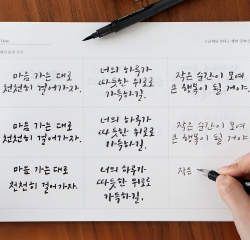 마음 가는 대로
천천히 걸어가자.
너의 하루가
따듯한 위로로
가득하길.
작은 순간이 모여
큰 행복이 될 거야.
마음 가는 대로
천천히 걸어가자.
너의 하루가
따듯한 위로로
가득하길.
작은 순간이 모여
큰 행복이 될 거야
마음 가는 대로
천천히 걸어가자.
너의 하루가
따듯한 위로로
가득하길.
작은